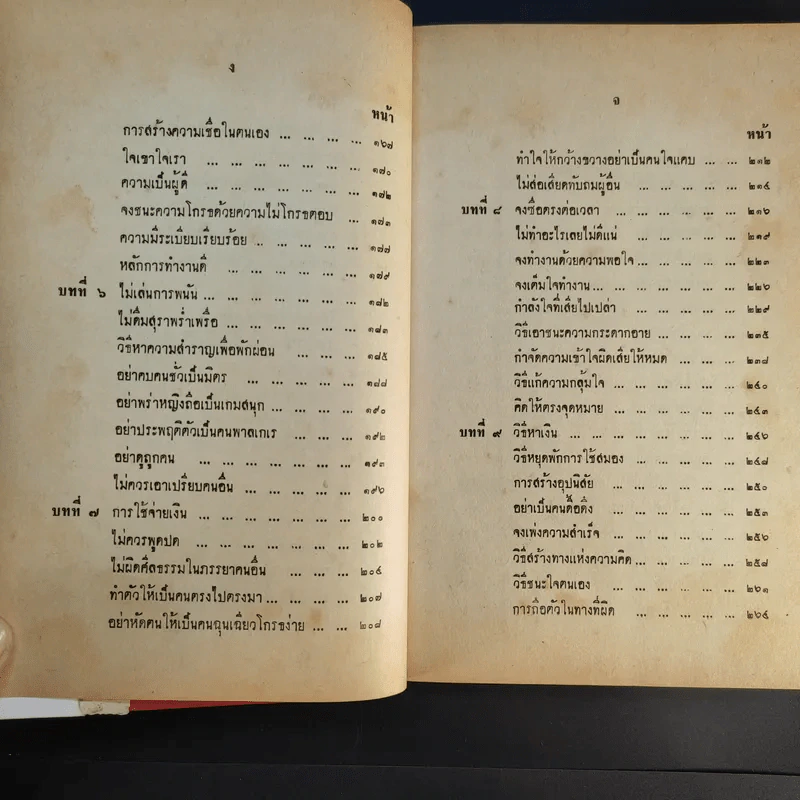 ง
หน้า
การสร้างความเชื่อในตนเอง ... ... ... ... ๑๖๗
ใจเขาใจเรา ... ... ... ... ... ... ๑๗๐
ความเป็นผู้ดี ... ... ... ... ... ... ๑๗๒
จงชนะความโกรธด้วยความไม่โกรธตอบ ... ... ๑๗๓
ความมีระเบียบเรียบร้อย .. ... ... ... ... ๑๗๗
หลักการทำงานดี ... ... ... ... ... ๑๗๙
บทที่ ๖ ไม่เล่นการพนัน ... ... ... ... ... ... ๑๘๒
ไม่ดื่มสุราพร่ำเพรื่อ ... ... ... ... ... ๑๘๓
วิธีหาความสำราญเพื่อพักผ่อน ... ... ... ... ๑๘๕
อย่าคบคนชั่วเป็นมิตร ... ... ... ... ... ๑๘๘
อย่าพร่าหญิงถือเป็นเกมสนุก ... ... ... ... ๑๙๐
อย่าประพฤติตัวเป็นคนพาลเกเร ... ... ... ... ๑๙๒
อย่าดูถูกคน ... ... ... ... ... ... ๑๙๓
ไม่ควรเอาเปรียบคนอื่น ... ... ... ... ... ๑๙๖
บทที่ ๗ การใช้จ่ายเงิน ... ... ... ... ... ... ๒๐๐
ไม่ควรพูดปด ... ... ... ... ... ... ๒๐๒
ไม่ผิดศีลธรรมในภรรยาคนอื่น ... ... ... ๒๐๔
ทำตัวให้เป็นคนตรงไปตรงมา ... ... ... ... ๒๐๗
อย่าหัดตนให้เป็นคนฉุนเฉียวโกรธง่าย ... ... ... ๒๐๘
จ
หน้า
ทำใจให้กว้างขวางอย่าเป็นคนใจแคบ ... ... ๒๑๒
ไม่ส่อเสียดทับถมผู้อื่น ... ... ... ... ๒๑๔
บทที่ ๘ จงซื่อตรงต่อเวลา ... ... ... ... ... ๒๑๖
ไม่ทำอะไรเลยไม่ดีแน่ ... ... ... ... ... ๒๑๙
จงทำงานด้วยความพอใจ ... ... ... ... ๒๒๓
จงเต็มใจทำงาน ... ... ... ... ... ... ๒๒๖
กำลังใจที่เสียไปเปล่า ... ... ... ... ... ๒๒๙
วิธีเอาชนะความกระดากอาย ... ... ... ... ๒๓๕
กำจัดความเข้าใจผิดเสียให้หมด ... ... ... ๒๓๘
วิธีแก้ความกลุ้มใจ ... ... ... ... ... ๒๔๐
คิดให้ตรงจุดหมาย ... ... ... ... ... ๒๔๓
บทที่ ๙ วิธีหาเงิน ... ... ... ... ... ... ๒๔๖
วิธีหยุดพักการใช้สมอง ... ... ... ... ๒๔๘
การสร้างอุปนิสัย ... ... ... ... ... ๒๕๐
อย่าเป็นคนดื้อดึง ... ... ... ... ... ๒๕๓
จงเพ่งความสำเร็จ ... ... ... ... ... ๒๕๖
วิธีสร้างทางแห่งความคิด ... ... ... ... ๒๕๘
วิธีชนะใจตนเอง ... ... ... ... ... ๒๖๑
การถือตัวในทางที่ผิด ... ... ... ... ๒๖๔